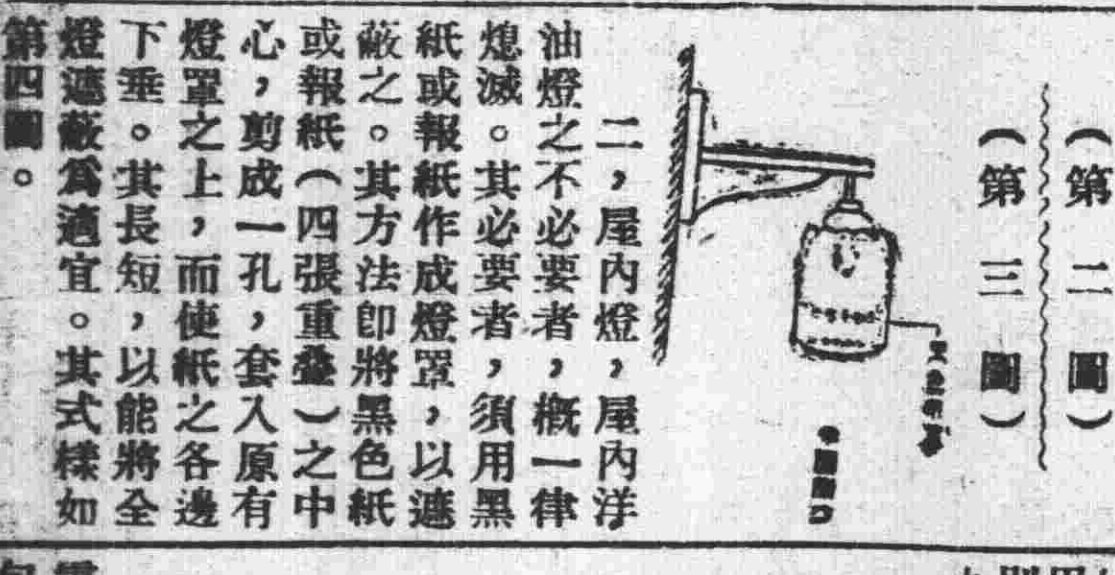 （第二圖）
（第三圖）
二，屋內燈，屋內洋
油燈之不必要者，概一律
熄滅。其必要者，須用黑
紙或報紙作成燈罩，以遮
蔽之。其方法卽將黑色紙
或報紙（四張重疊）之中
心，剪成一孔，套入原有
燈罩之上，而使紙之各邊
下垂。其長短，以能將全
燈遮蔽爲適宜。其式樣如
第四圖。